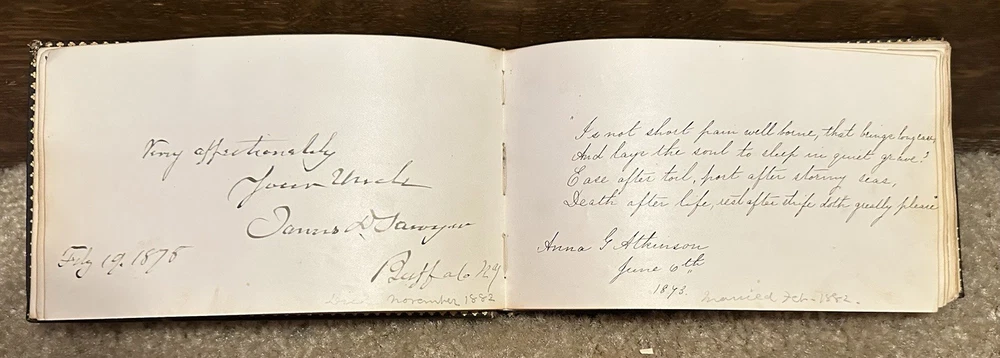 Very affectionately
Your Uncle
James D. Sawyer
Feby 19. 1875
Buffalo N.Y.
November 1882
"Is not short pain well borne, that brings long ease,
And lays the soul to sleep in quiet grave?
Ease after toil, port after stormy seas,
Death after life, rest after strife doth greatly please"
Anna G Atkinson
June 6th
1873.
Married Feb. 1882.